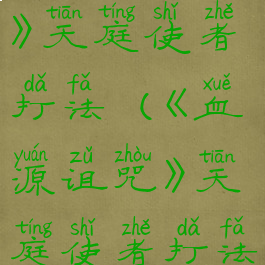 tiān tíng shǐ zhě
》天庭使者
dǎ fǎ xuě
打法（《血
yuán zǔ zhòu tiān
源诅咒》天
tíng shǐ zhě dǎ fǎ
庭使者打法